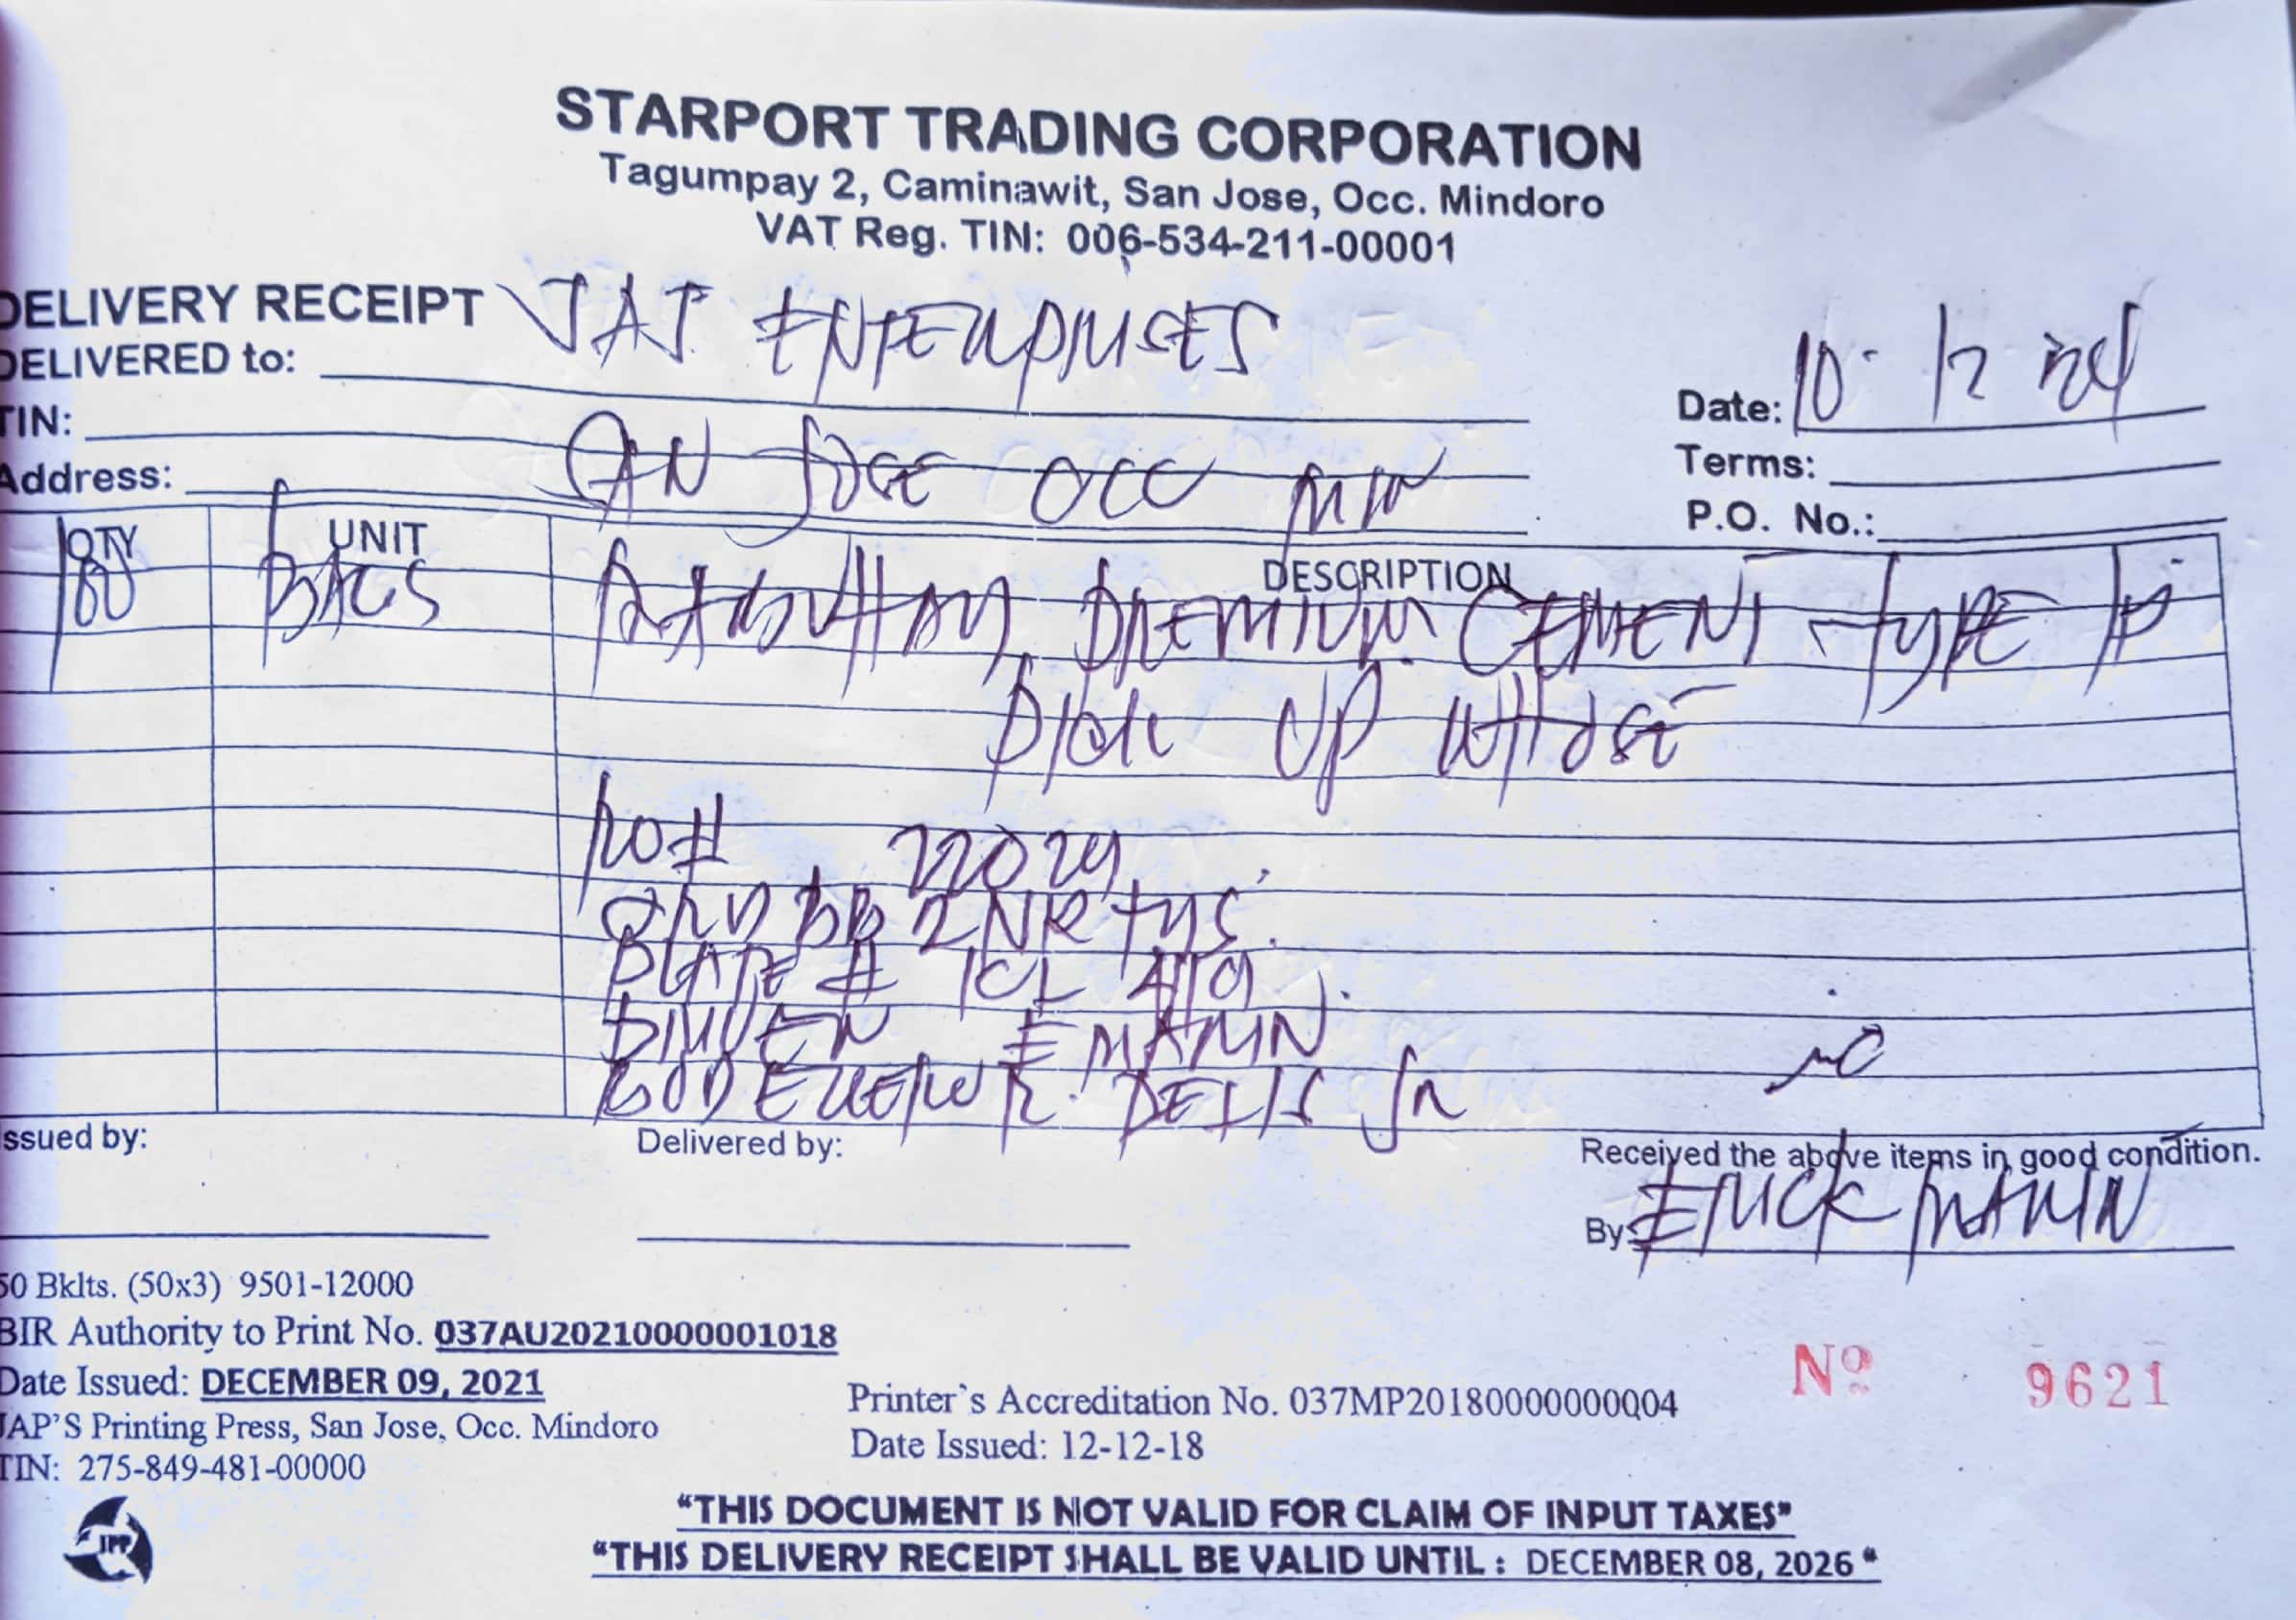 STARPORT TRADING CORPORATION
Tagumpay 2, Caminawit, San Jose, Occ. Mindoro
VAT Reg. TIN: 006-534-211-00001
DELIVERY RECEIPT
DELIVERED to: JAT ENTERPRISES
Date: 10-12 24
TIN:
Terms:
Address: SAN JOSE OCC MIN
P.O. No.:
QTY UNIT DESCRIPTION
BAGS PREMIUM CEMENT TYPE 1P
PICK UP WHDSE
PO#
PLATE #
DRIVER E MARIN
JR
Issued by:
Delivered by:
Received the above items in good condition.
By: ERICK MARIN
50 Bklts. (50x3) 9501-12000
BIR Authority to Print No. 037AU20210000001018
Date Issued: DECEMBER 09, 2021
JAP'S Printing Press, San Jose, Occ. Mindoro
TIN: 275-849-481-00000
Printer`s Accreditation No. 037MP20180000000004
Date Issued: 12-12-18
Nº 9621
JPP
“THIS DOCUMENT IS NOT VALID FOR CLAIM OF INPUT TAXES”
“THIS DELIVERY RECEIPT SHALL BE VALID UNTIL : DECEMBER 08, 2026 “